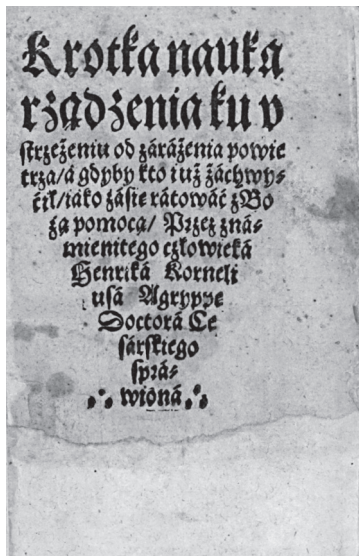 Krotka nauka
rządzenia ku v
strzeżeniu od záráżenia powie
trza/á gdyby kto iuż záchwy⸗
ćił/iáko záśię rátowáć z Bo
żą pomocą/ Przez zná⸗
mienitego cżłowieká
Henriká Korneli
usá Agryppę
Doctorá Ce
sárskiego
sprá⸗
wioná